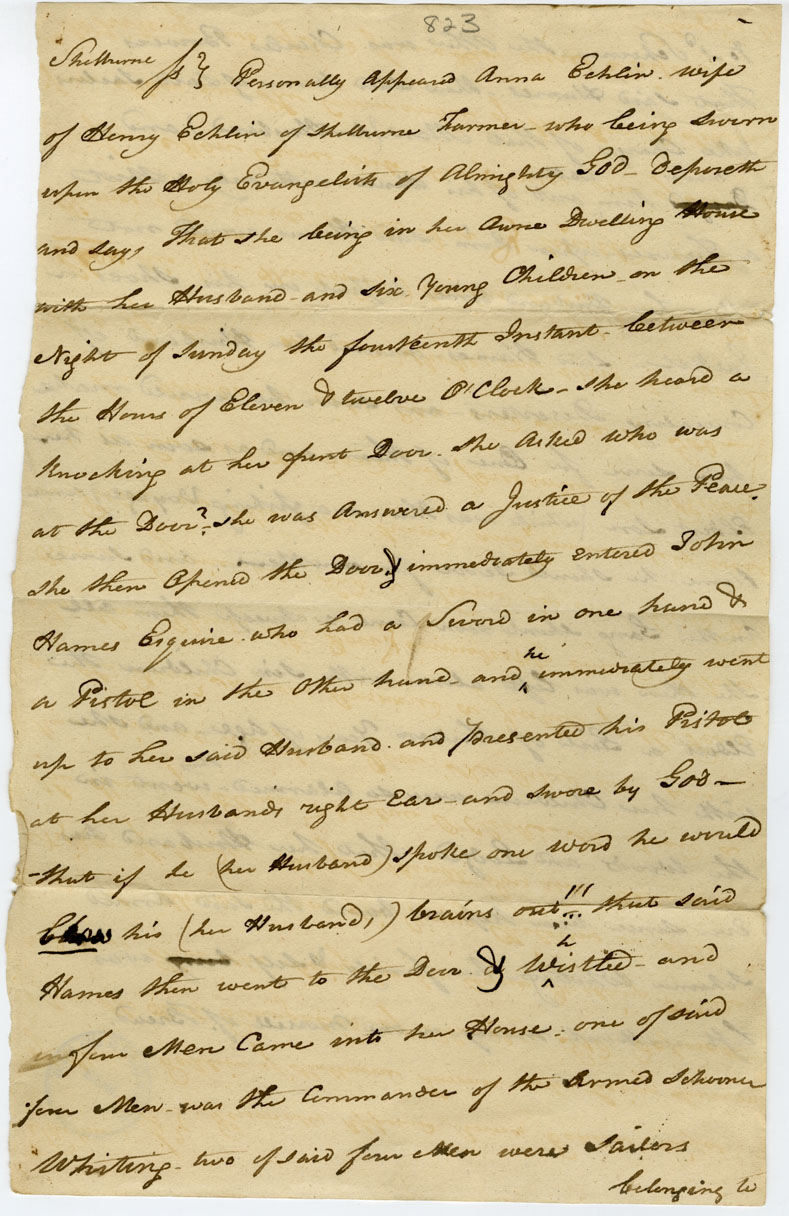 823
Shelburne ss} Personally Appeared Anna Echlin wife
of Henry Echlin of Shelburne Farmer - who being sworn
upon the Holy Evangelists of Almighty God - Deposeth
and says, That she being in her Owne Dwelling House
with her Husband - and six Young Children - on the
Night of Sunday the fourteenth Instant - between
the Hours of Eleven & twelve O'Clock - she heard a
knocking at her frunt Door. she Asked who was
at the Door? - she was Answered a Justice of the Peace.
she then Opened the Door, & immediately entered John
Hames Esquire. who had a Sword in one hand &
a Pistol in the Other hand - and he immediately went
up to her said Husband. and presented his Pistol
at her Husbands right Ear - and swore by God -
- that if he (her Husband) spoke one word he would
Blow his (her Husband,) brains out!!! that said
Hames then went to the Door & Whistled - and
four Men Came into her House. one of said
four Men - was the Commander of the Armed Schooner
Whiting - two of said four Men were Sailors
belonging to